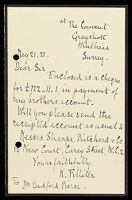 at The Convent
Grayshott
Hindhead
Surrey.
Dear Sir
Enclosed is a cheque
for £112.11.1 in payment of
my brother's account.
Will you please send the
receipted account as usual to
Messrs Sharpe, Pritchard & Co.
12 New Court, Carey Street, W.C.2
Yours faithfully,
To Dr Bedford Pierce